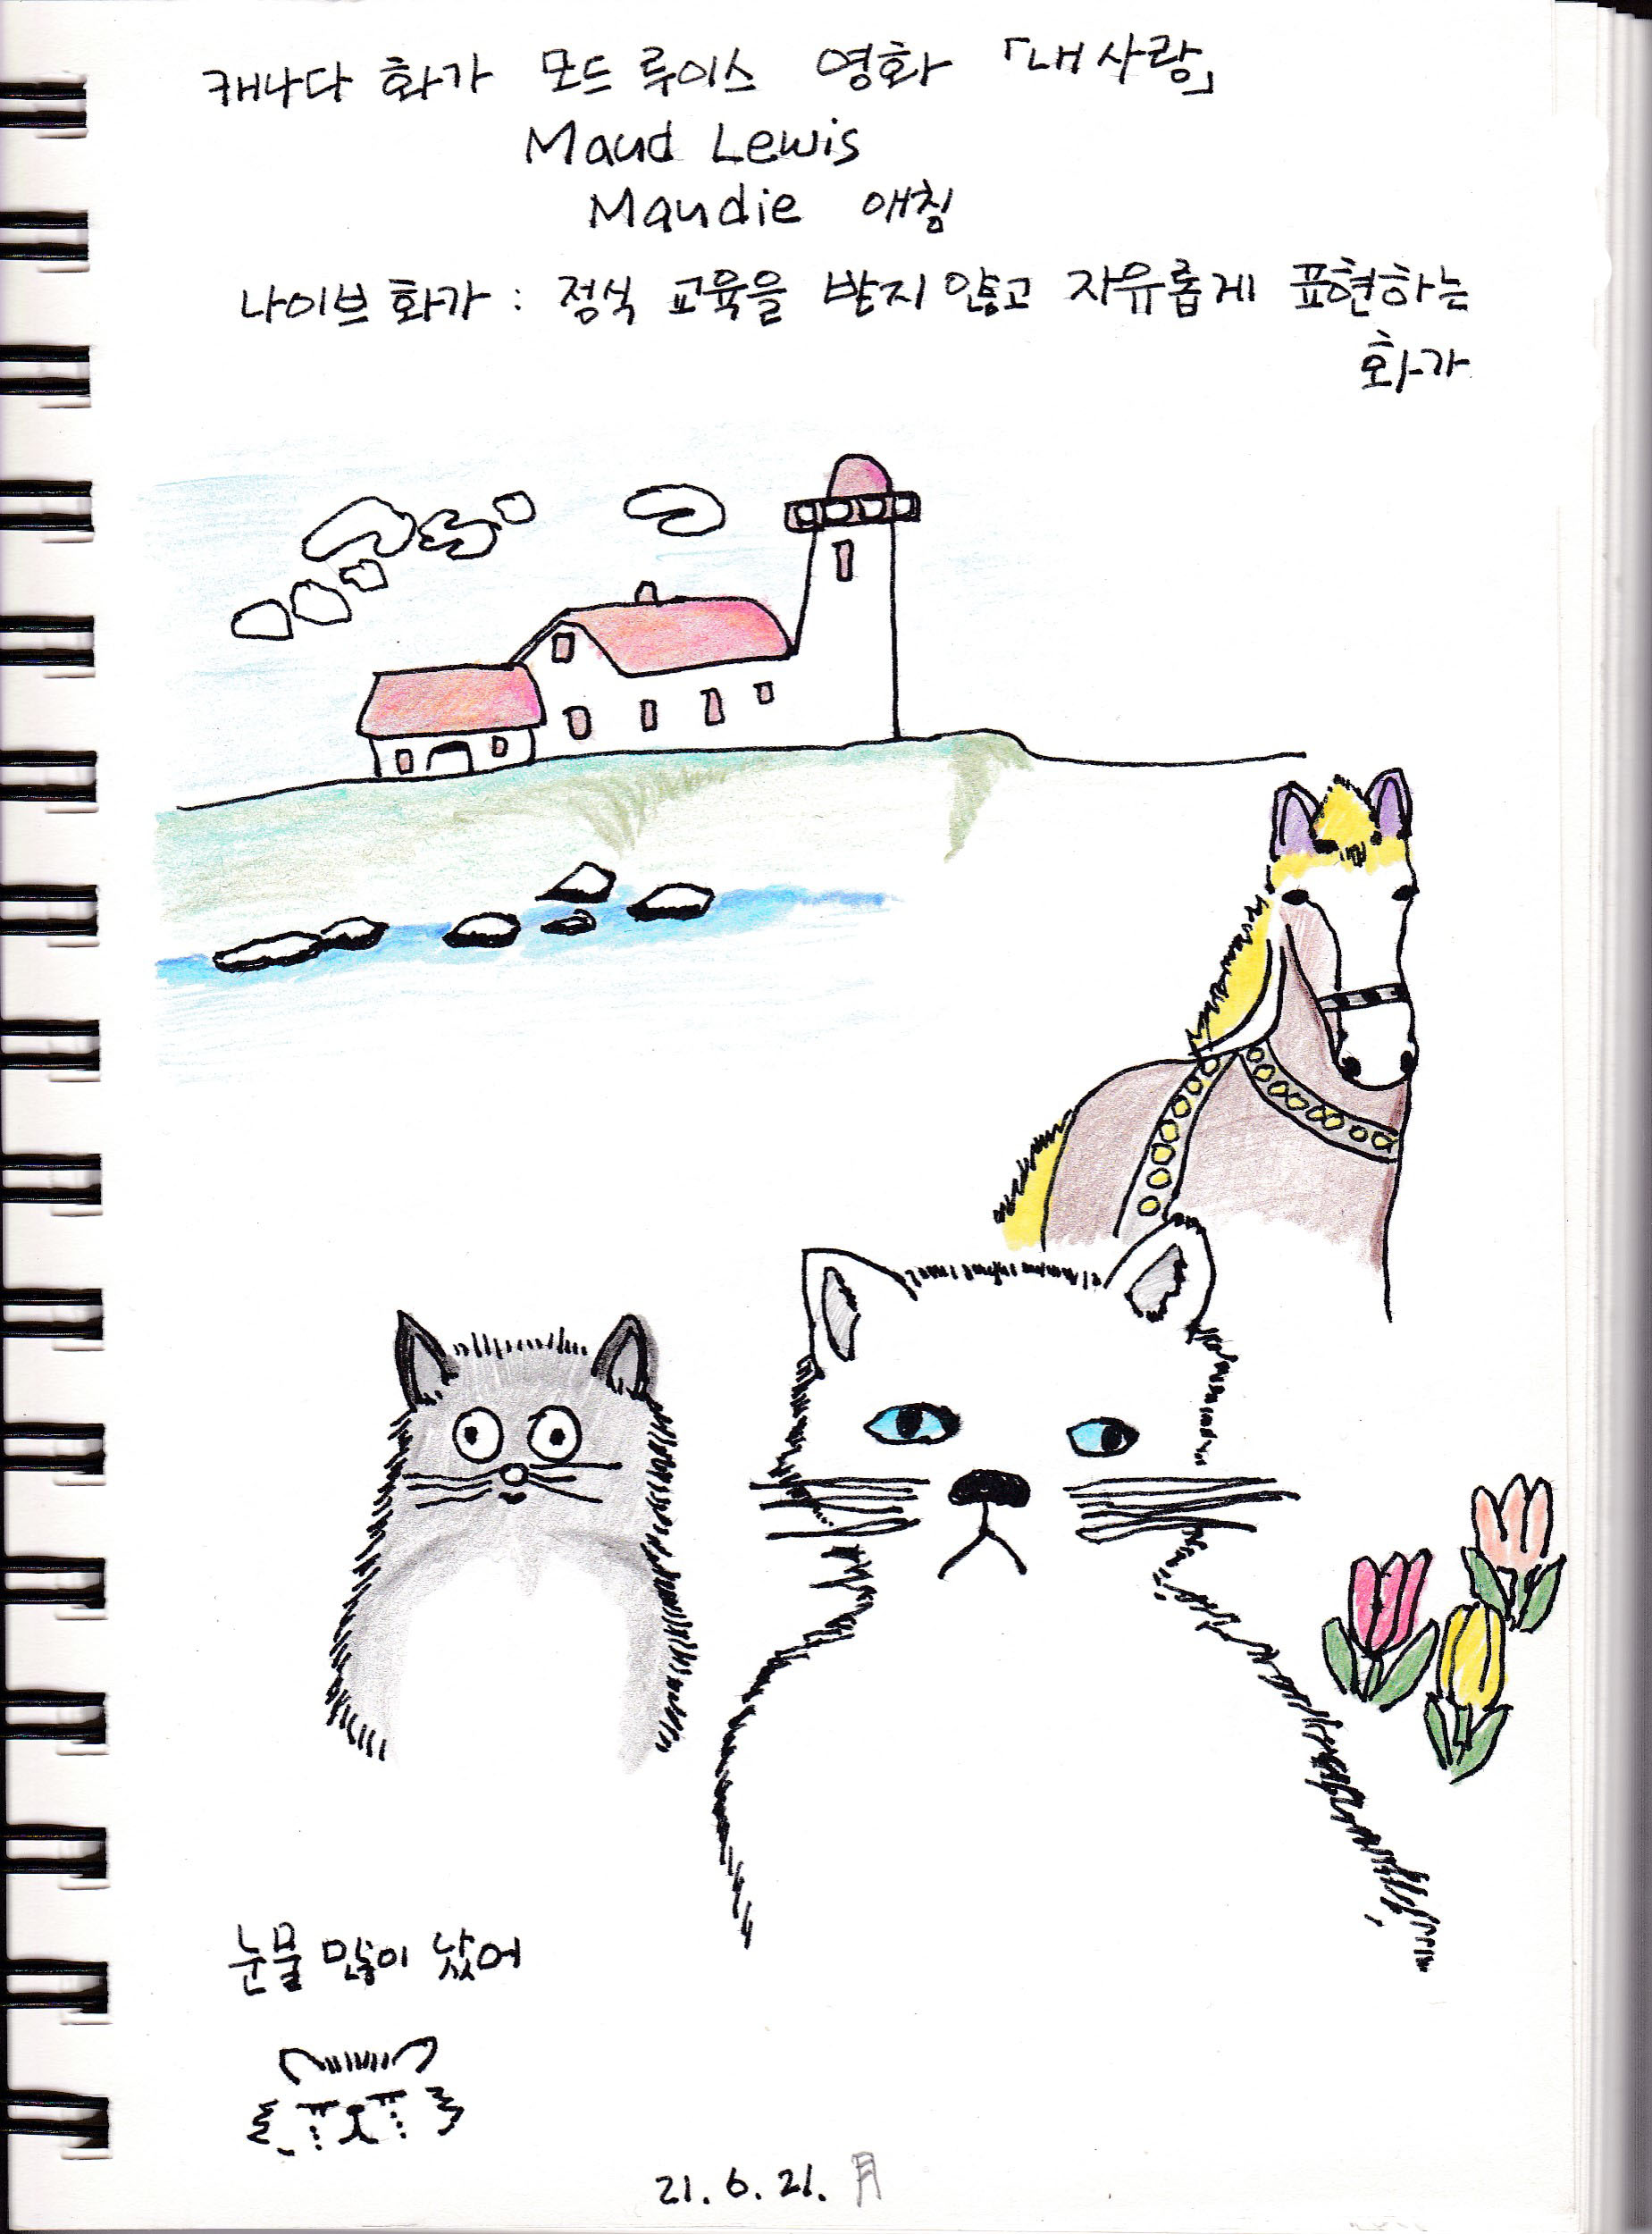 캐나다 화가 모드 루이스 영화 「내사랑」
Maud Lewis
Maudie 애칭
나이브 화가 : 정식 교육을 받지 않고 자유롭게 표현하는
화가
눈물 많이 났어
21. 6. 21. 月